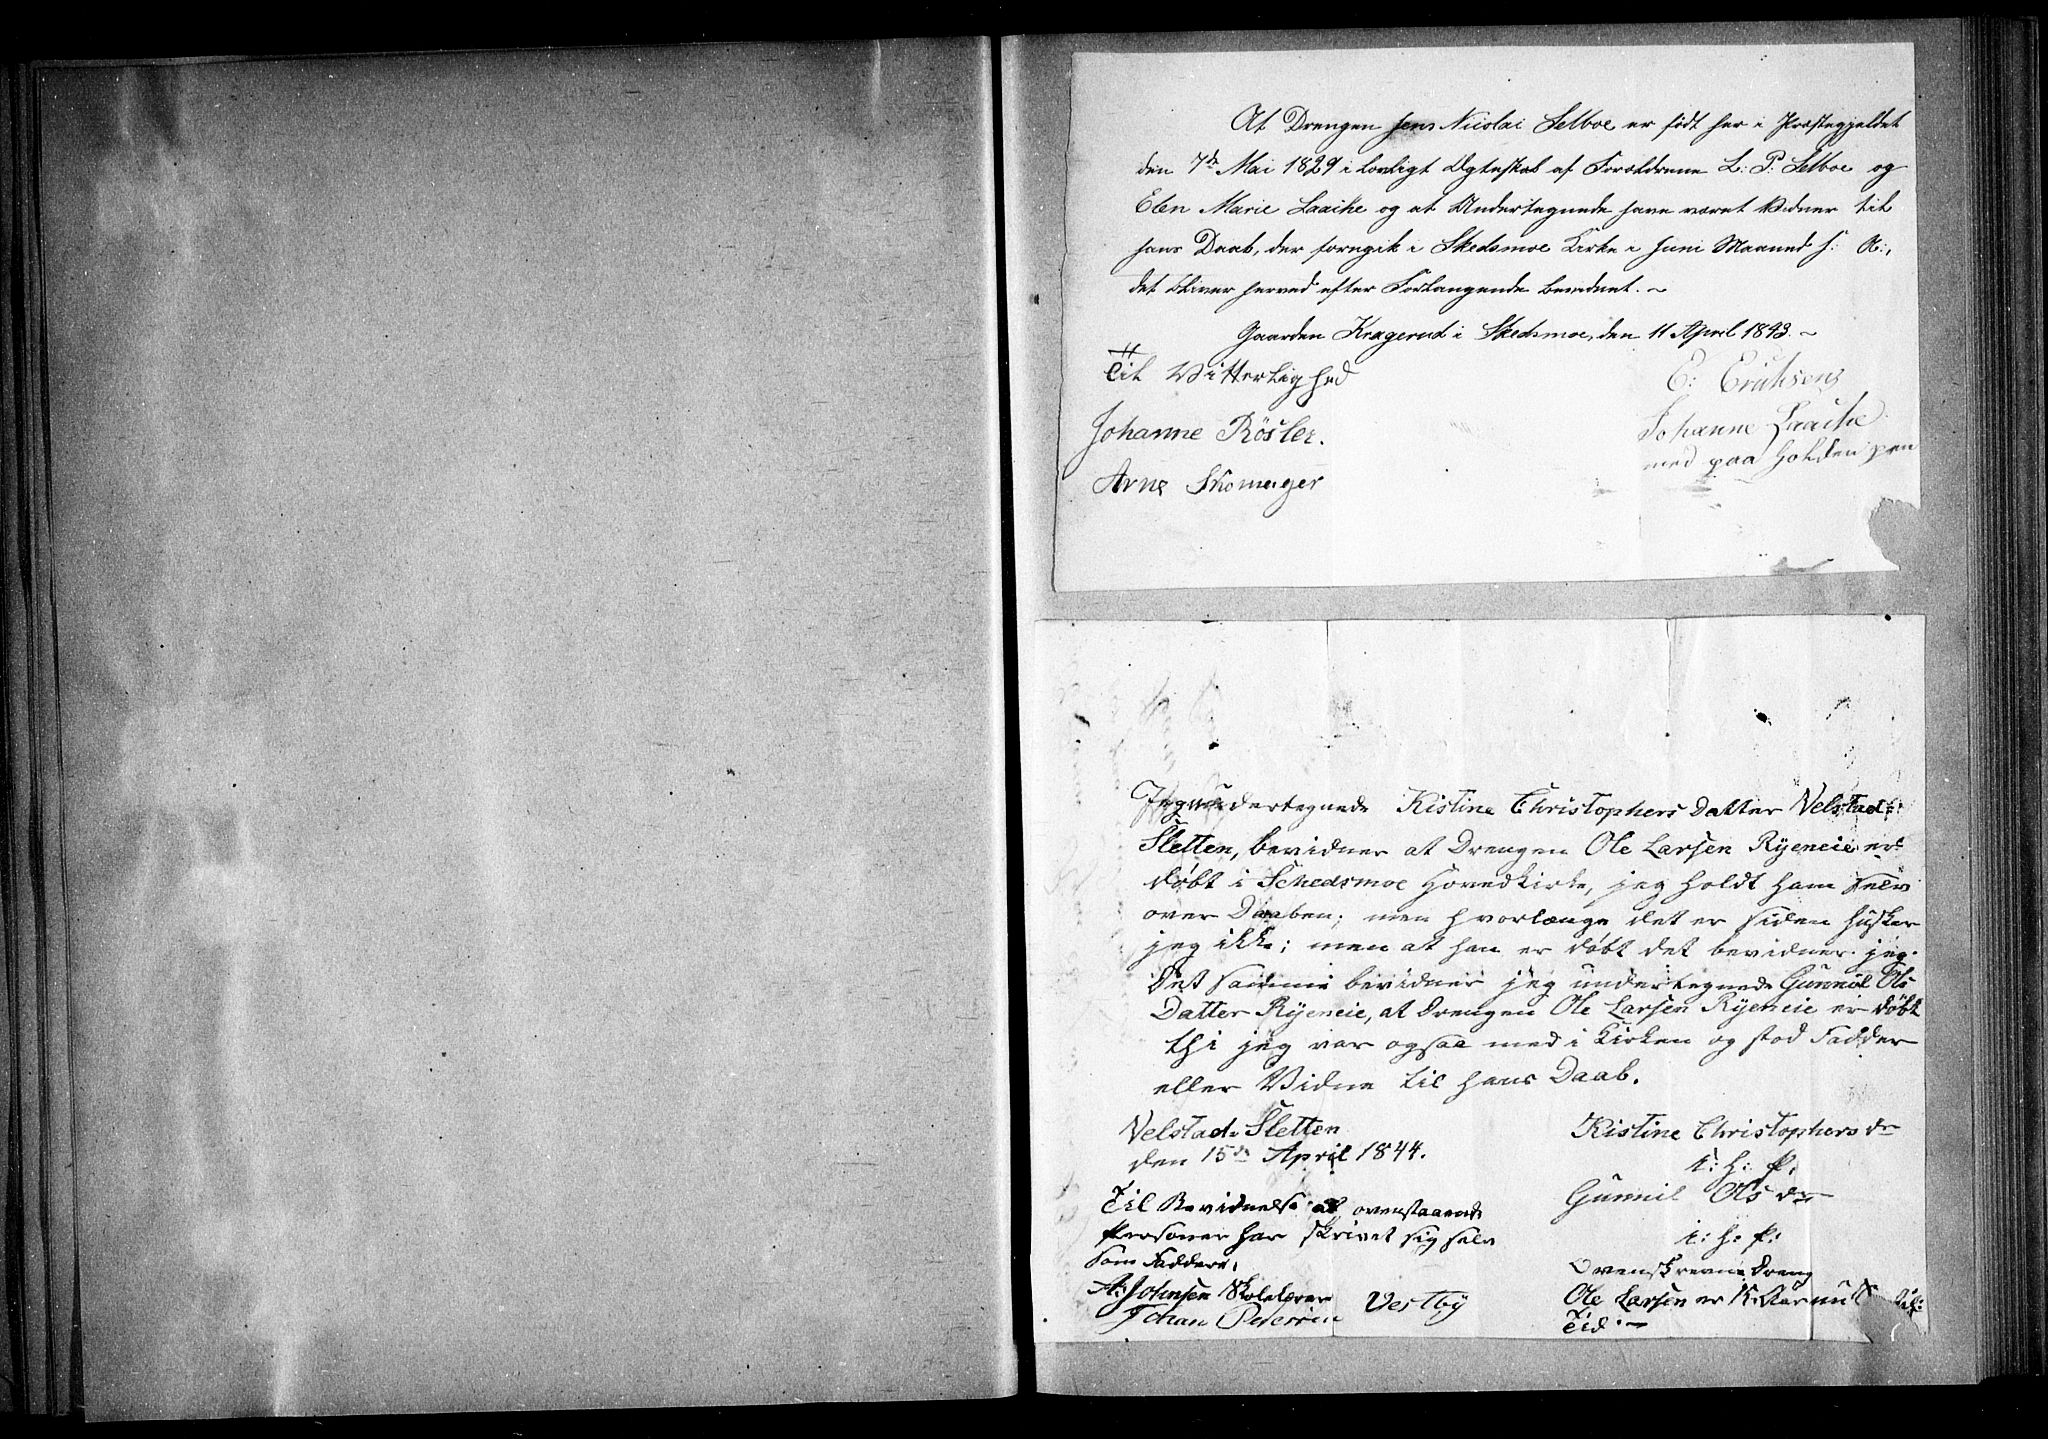 At Drengen Jens Nicolai Selboe er født her i Præstegjeldet
den 7de Mai 1829 i lovligt Ægteskab af Forældrene L: P: Selboe og
Elen Marie Laache og at Undertegnede have været Vidner til
hans Daab, der foregik i Skedsmoe Kirke i Juni Maaned s: A:,
det bliver herved efter Forlangende bevidnet. ~
Gaarden Kragerud i Skedsmoe, den 11 April 1843. ~
Til Vitterlighed
E: Erichsens
Johanne Røsler.
Johanne Laache
med paa holden pen
Arne Skomager
Jeg undertegnede Kistine Christophers Datter Velstad-
Sletten, bevidner at Drengen Ole Larsen Ryeneie er
døbt i Schedsmoe Hovedkirke, jeg holdt ham selv
over Daaben; men hvorlænge det er siden husker
jeg ikke; men at han er døbt det bevidner jeg.
Det samme bevidner jeg undertegnede Gunnil Ols
Datter Ryeneie, at Drengen Ole Larsen Ryeneie er døbt
thi jeg var ogsaa med i Kirken og stod Fadder
eller Vidne til hans Daab.
Velstad-Sletten
den 15de April 1844.
Kistine Christophers dr
Gunnil Ols dr
Til Bevidnelse at ovenstaaende
Personer har skrivet sig selv
som Faddere,
A: Johnsen Skolelærer Vestby
Johan Pedersen
Ovenskrevne Dreng
Ole Larsen er
Tid. ~